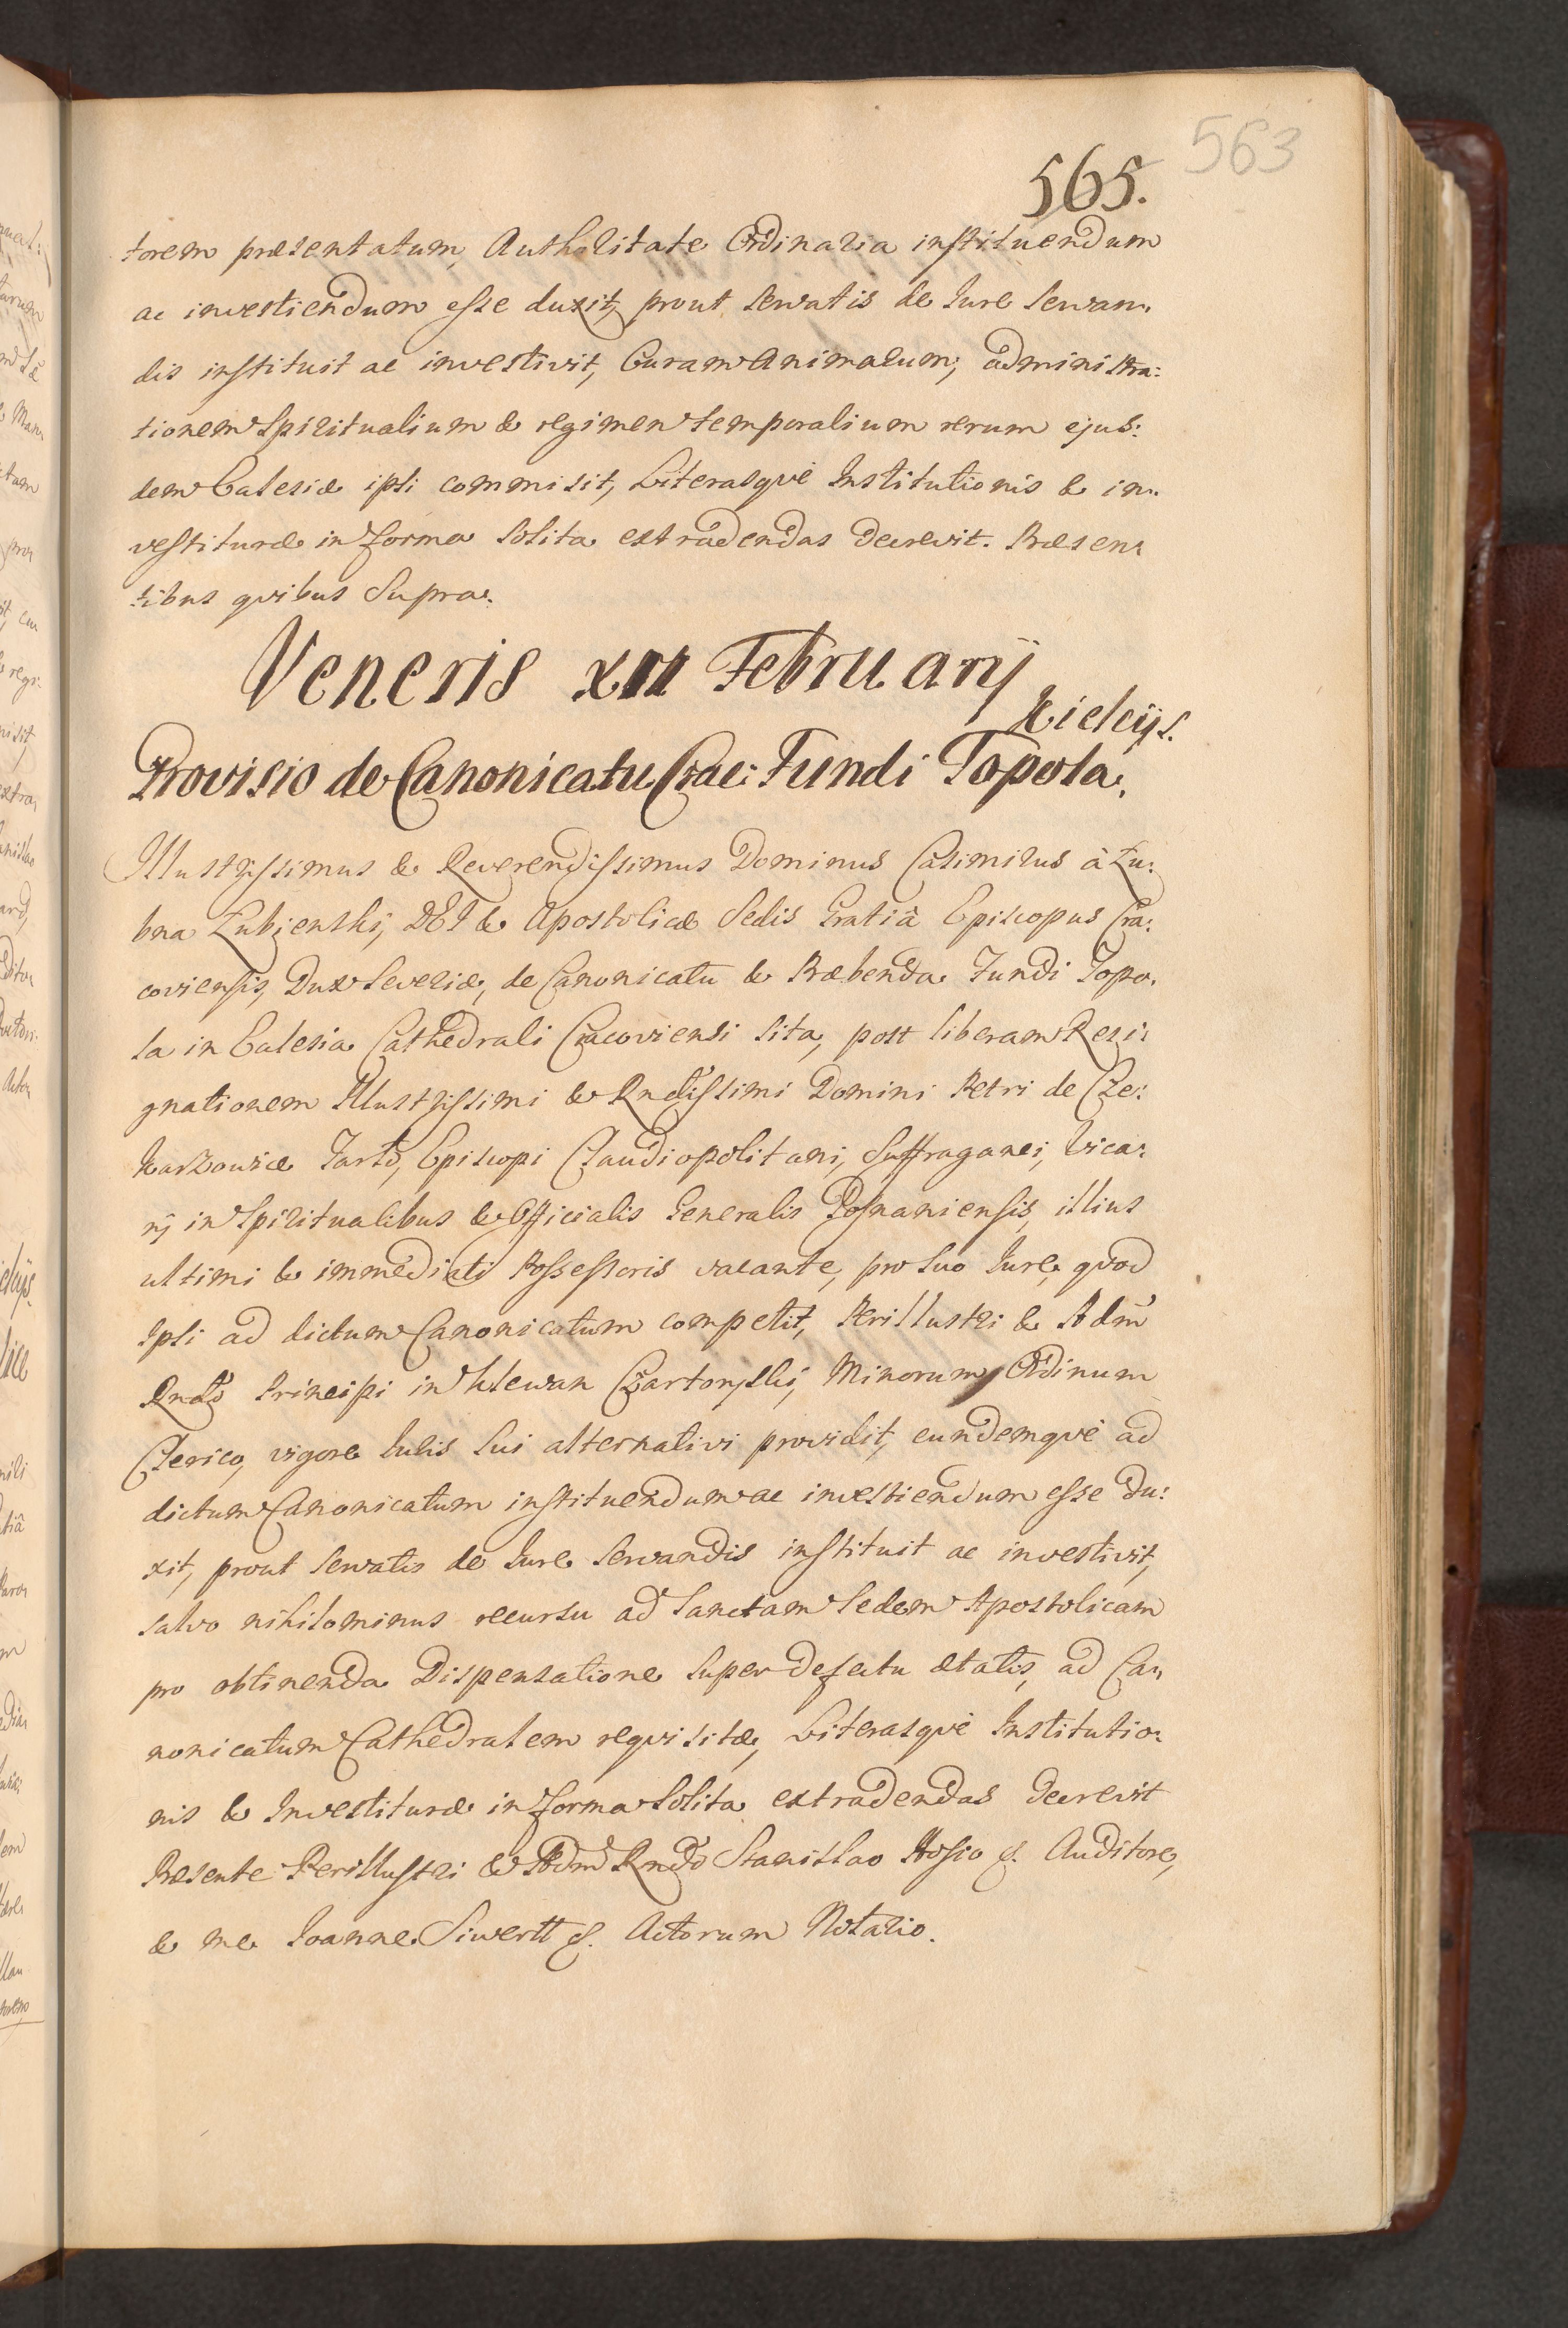 563
565.
torem præsentatum, Authoritate Ordinaria instituendum
ac investiendum esse duxit, prout servatis de Iure servan:
dis instituit ac investivit, Curam Animarum, administra:
tionem Spiritualium & regimen temporalium rerum ejus:
dem Ecclesiæ ipsi commisit, Literasqve Institutionis & in:
vestituræ in forma solita extradendas decrevit. Præsen:
tibus qvibus Supra.
Veneris Februarij
Kielcijs.
Provisio de Canonicatu Crac: Fundi Topola.
Illustrissimus & Reverendissimus Dominus Casimirus à Łu:
bna Łubienski, DEI & Apostolicæ Sedis Gratiâ Episcopus Cra:
coviensis, Dux Severiæ, de Canonicatu & Præbenda Fundi Topo:
la in Ecclesia Cathedrali Cracoviensi sita, post liberam Resi:
gnationem Illustrissimi & Rndissimi Domini Petri de Cze:
karzowice Tarło, Episcopi Claudiopolitani, Suffraganei, Vica:
rij in Spiritualibus & Officialis Generalis Posnaniensis, illius
ultimi & immediati Possessoris vacante, pro suo Iure, qvod
Ipsi ad dictum Canonicatum competit, Perillustri & Adm̃
Rndo Principi in Klewan Czartoryski, Minorum Ordinum
Clerico, vigore Iuris sui alternativi providit, eundemqvè ad
dictum Canonicatum instituendum ac investiendum esse du:
xit, prout servatis de Iure servandis instituit ac investivit,
salvo nihilominus recursu ad Sanctam Sedem Apostolicam
pro obtinenda Dispensatione super defectu ætatis, ad Ca:
nonicatum Cathedralem reqvisitæ, Literasqvè Institutio:
nis & Investituræ in forma solita extradendas decrevit
Præsente Perillustri & Adm̃ Rndo Stanislao Hosio &. Auditore,
& me Ioanne Siwertt &. Actorum Notario.